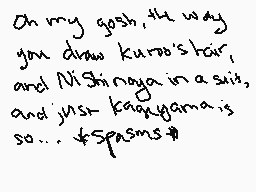 Oh my gosh, the way
you draw kuroo's hair,
and Nishinoya in a suit,
and just kageyama is
so... *spasms*